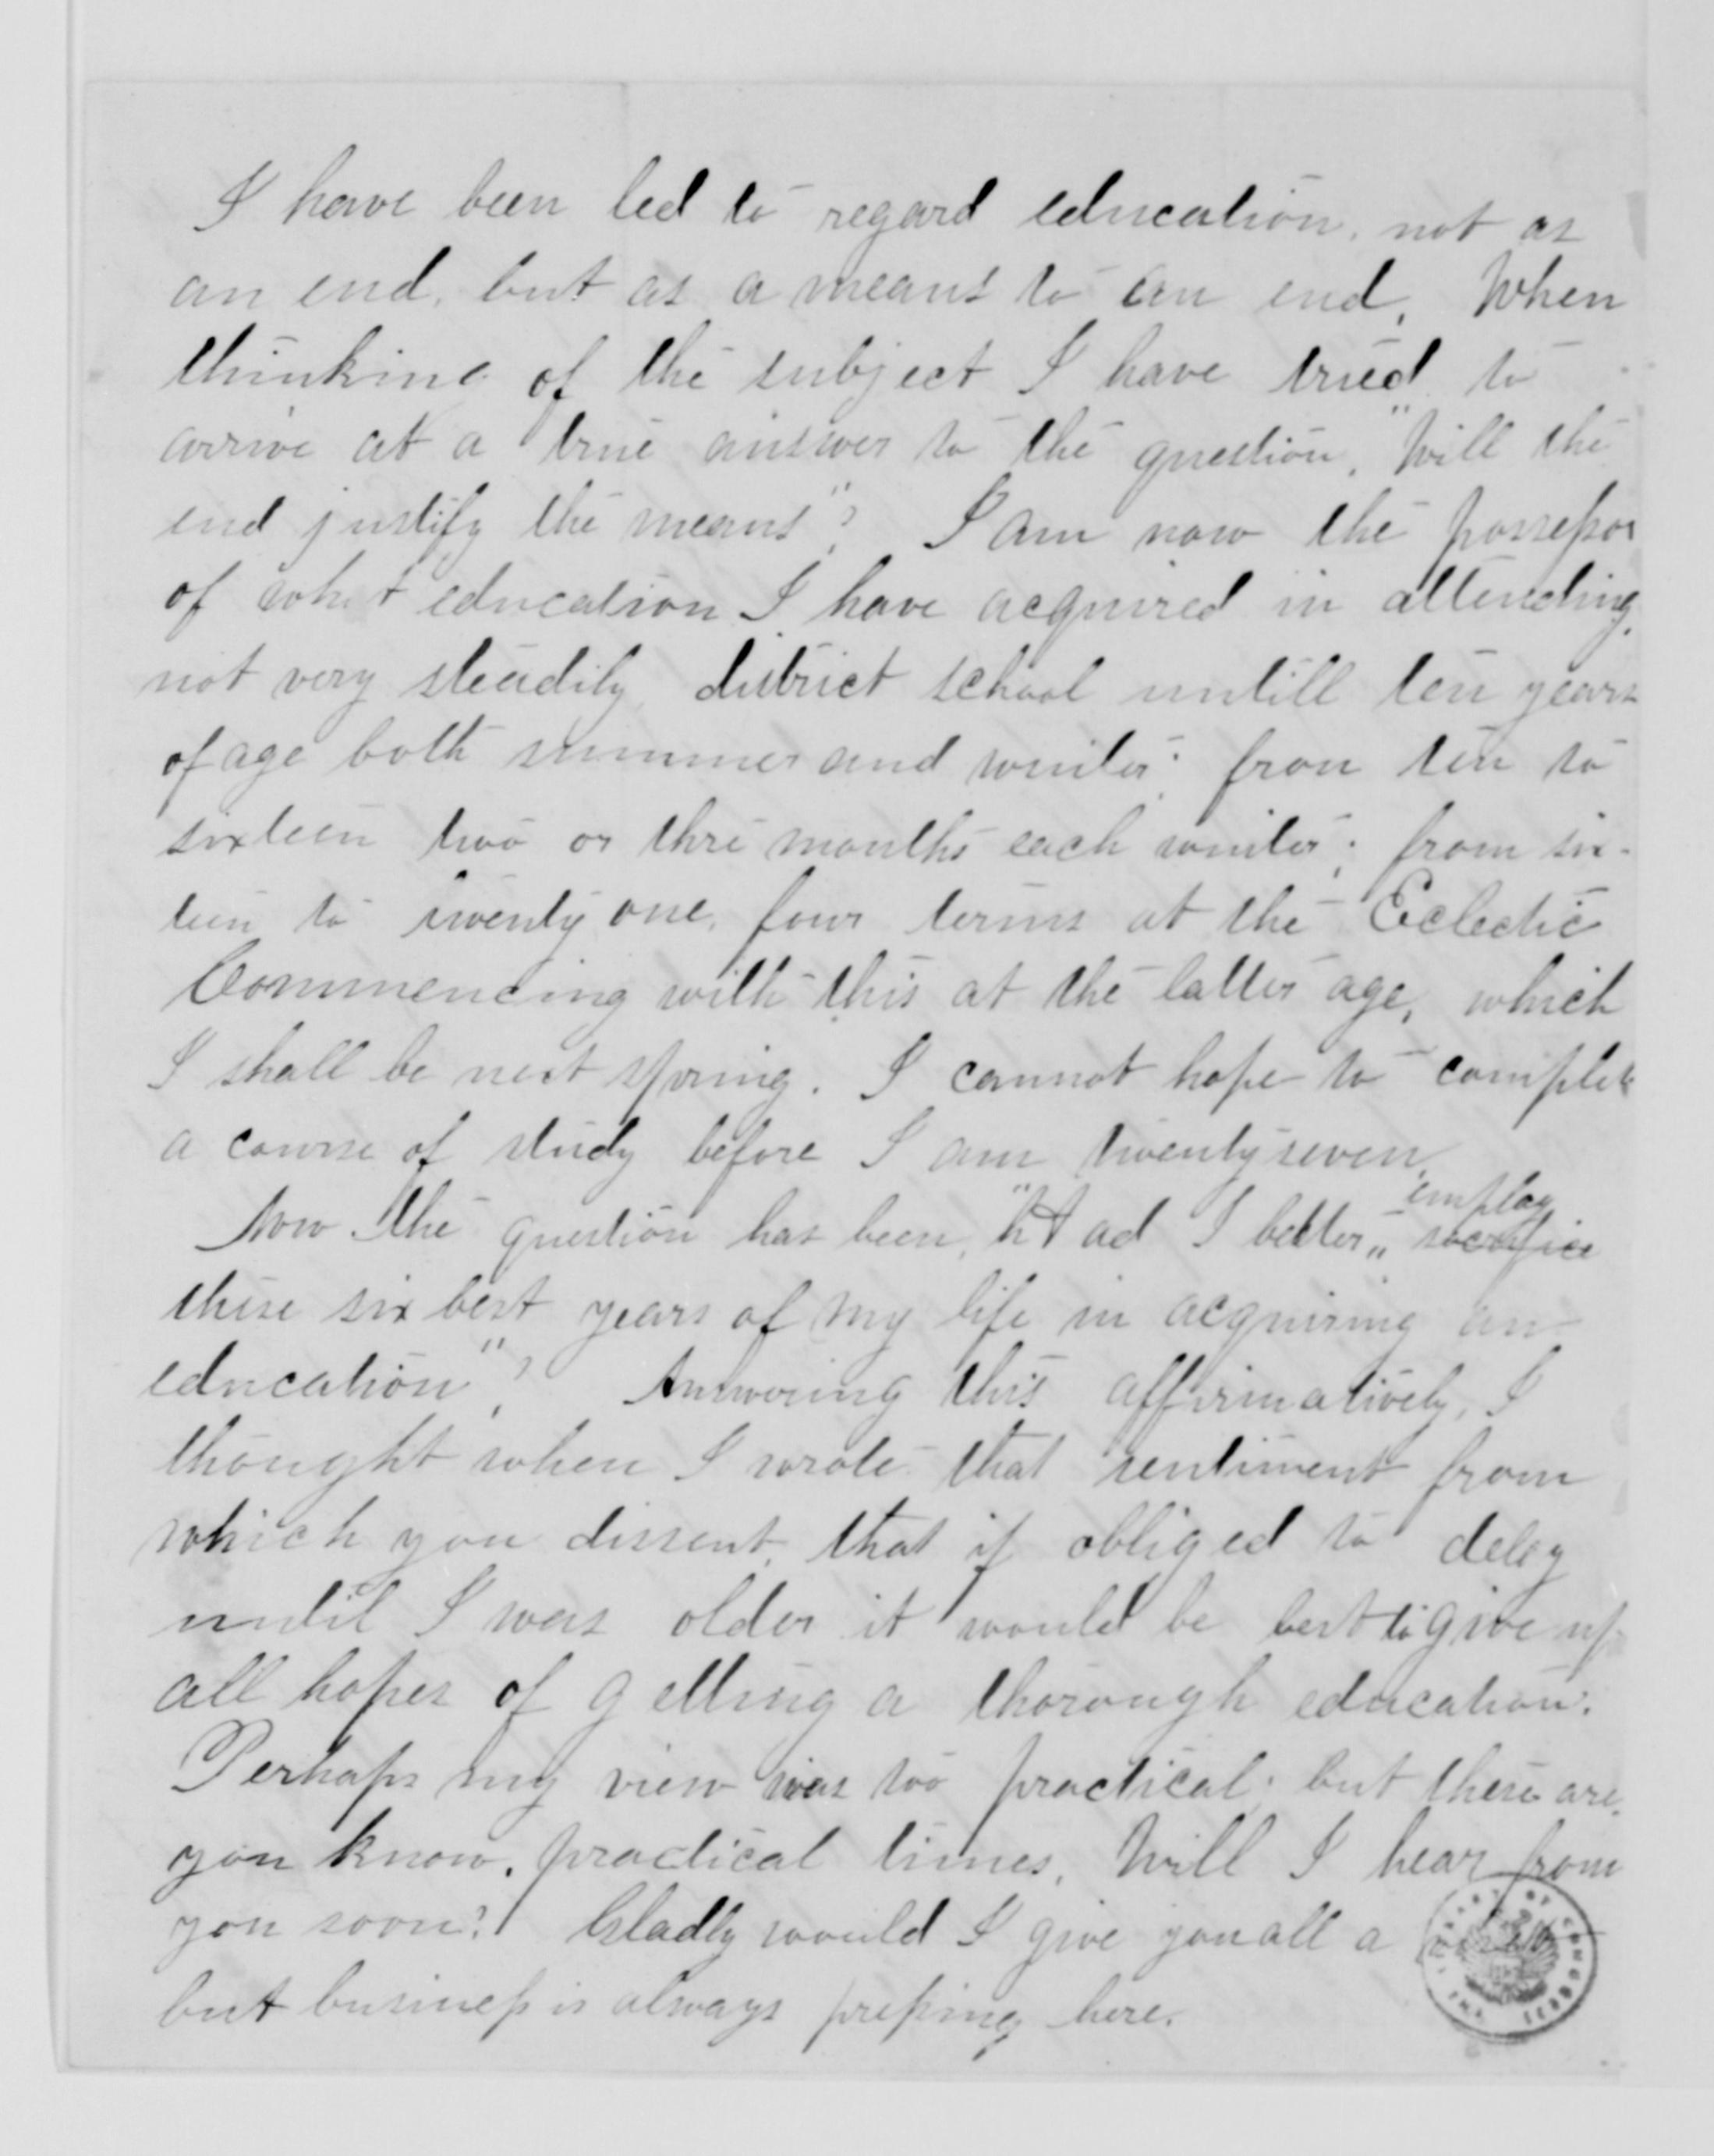 I have been led to regard education, not as
an end, but as a means to an end. When
thinking of the subject I have tried to
arrive at a true answer to the question, "Will the
end justify the means"? I am now the possessor
of what education I have acquired in attending,
not very steadily, district school untill ten years
of age both summer and winter; from ten to
sixteen two or thre months each winter; from six-
teen to twenty one, four terms at the Eclectic
Commencing with this at the latter age, which
I shall be next spring. I cannot hope to complete
a course of study before I am twenty seven.
employ
Now the question has been, "Had I better,, sacrifice
these six best years of my life in acquiring an
education"? Answering this affirmatively, I
thought when I wrote that sentiment from
which you dissent, that if obliged to delay
until I was older it would be best to give up
all hopes of getting a thorough education.
Perhaps my view was too practical; but these are,
you know, practical times. Will I hear from
you soon? Gladly would I give you all a visit
but business is always pressing here.
THE LIBRARY OF CONGRESS